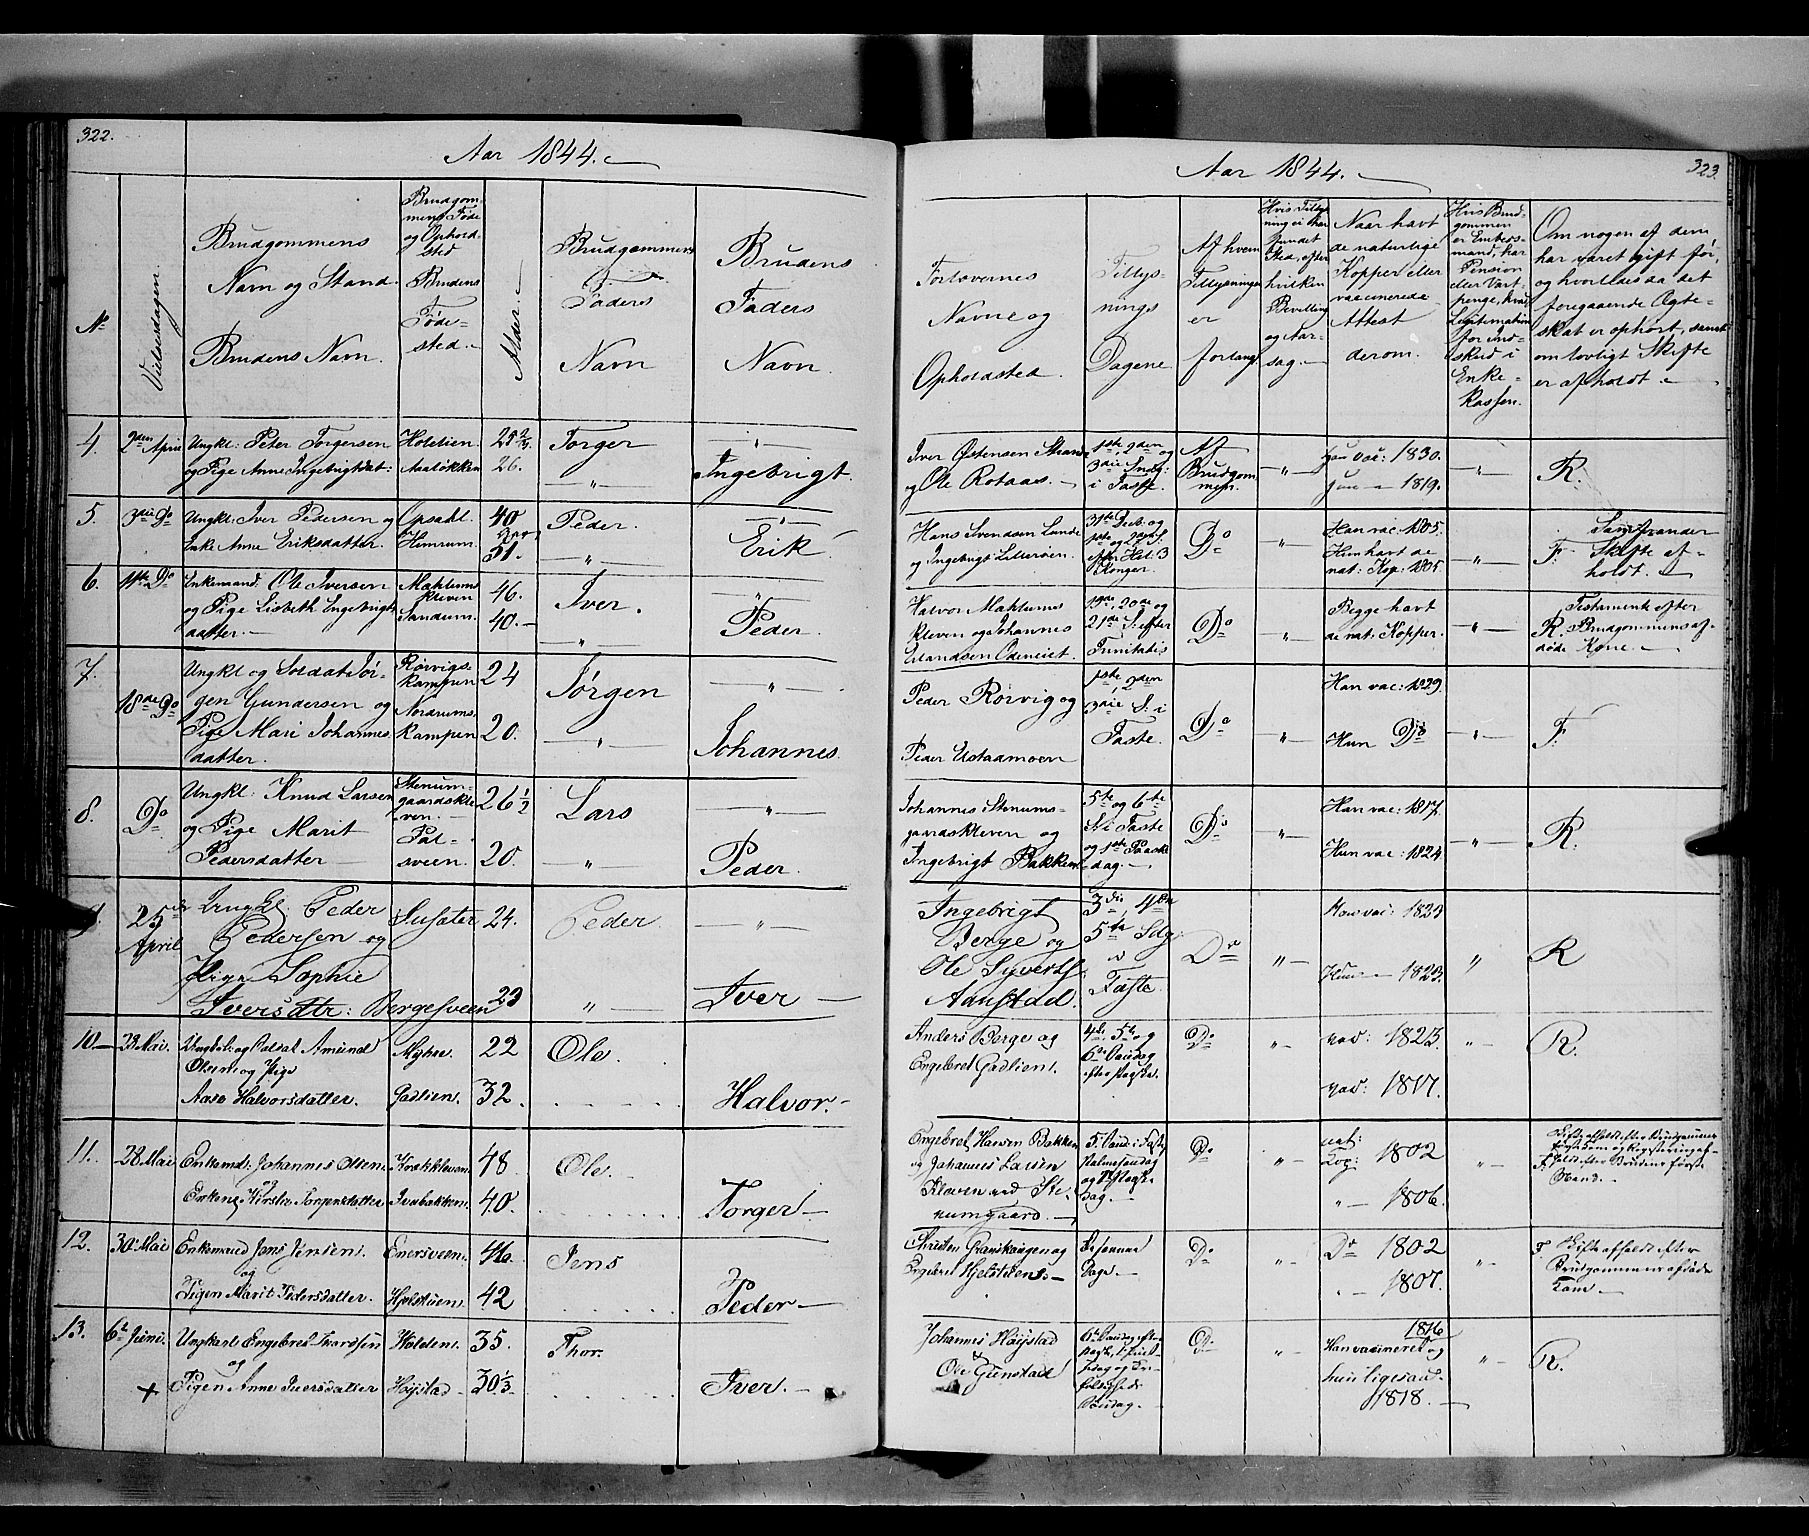 322.
Aar 1844.
No
Vielsesdagen.
Brudgommens
Navn og Stand.
Brudens Navn.
Brudgom-
mens Føde
og Ophold-
sted
Brudens
Føde-
sted.
Alder.
Brudgommens
Faders
Navn
Brudens
Faders
Navn.
4.
2den April
Ungkl: Peter Torgersen
og Pige Anne Ingebrigtsdat:
Holstien.
Aaløkken
25
26.
Torger
"
"
Ingebrigt.
5.
3die Do
Ungkl: Iver Pedersen og
Enke Anne Eriksdatter.
Opsahl.
Himrum.
40
51.
Peder.
"
"
Erik
6.
11te Do
Enkemand: Ole Iversen
og Pige Lisbeth Ingebrigts
datter.
Mahlums
kleven
Sandum.
46.
40.
Iver.
"
"
Peder.
7.
18de Do
Ungkl og Soldat Jør-
gen Gundersen og
Pige Mari Johannes
datter.
Rørvigs-
kampen
Nordrums-
kampen
24
20.
Jørgen
"
"
Johannes.
8.
Do
Ungkl: Knud Larsen
og Pige Marit
Pedersdatter
Stenum-
gaardskle
ven.
Pal-
sveen.
26 1/2
20.
Lars
"
"
Peder.
25de
April
Ungkl Peder
Pedersen og
Pige Sophie
Iversdtr: Bergesveen
Lusæter
24.
23
Peder.
"
"
Iver
10
23 Mai.
Ungkl: og Soldat Amund
Olsen og Pige
Aase Halvorsdatter.
Myhre.
Gadlien.
22
32
Ole.
Halvor.
11.
28 Mai
Enkemd: Johannes Olsen
Enkene Kirstie Torgersdatter
Krækkleven
Ivabakken.
48
40.
Ole.
Torger
12.
30 Mai
Enkemand Jens Jensen.
og
Pigen Marit Pedersdatter.
Enersveen.
Hjelstuen.
46.
42
Jens
Peder
13.
6te Juni.
Ungkarl Engebret Thordsen
og
Pigen Anne Iversdatter
Holden.
Høystad
35.
30 1/3
Thor.
Iver.
323.
Aar 1844.
Forlovernes
Navne og
Opholdsted.
Tillys-
nings
Dagene
Af hvem
Tillysningen
er
forlangt
Hvis Tillys-
ning ei har
fundet
Sted, efter
hvilken
Bevilling
og Aar-
sag.
Naar havt
de naturlige
Kopper eller
vaccinerede
Attest
derom.
Hvis Brud-
gommen
er Embeds-
mand, har
Pension
eller Vart-
penge, hvad
Legitimation
for Ind-
skud i
Enke-
kassen.
Om nogen af dem
har været gift før,
og hvorledes da det
foregaaende Ægte-
skab er ophørt, samt
om lovligt Skifte
er afholdt.
Iver Østensen Strande
og Ole Rotaas.
1ste, 2den og
3die Sndg:
i Faste.
Af
Brudgom
men.
"
han vac: 1830.
hun " 1819.
"
R.
Hans Svendsen Lunde
og Ingebrigt Lillerøen
Do
"
Han vac: 1805.
Hun havt de
nat: Kop: 1805.
"
F.
Skifte af-
holdt.
Halvor Mahlums
kleven og Johannes
Erlandsen Odeneiet.
19de, 20de og
21de S. efter
Trinitatis
Do
"
Begge havt
de nat: Kopper.
"
R.
Testamente efter
Brudgommens af-
døde Kone.
Peder Rørvig og
Peder Ustadmoen
1ste, 2den
3die S. i
Faste.
Do
"
Han vac: 1829.
Hun Do
"
F.
Johannes Stenums-
gaardskleven og
Ingebrigt Bakken
5te og 6te
S. i Faste
og 1ste Paaske
dag.
Do
"
Han vac: 1817.
Hun vac: 1824.
"
R.
Ingebrigt
Berge og
Ole Syverts.
Aanstad.
3die, 4de
5te Sdg
i
Faste.
Do
"
Han vac: 1823
Hun " 1823.
"
R
Anders Berge og
Engebret Gadlien.
4de, 5te og
6te Søndag
efter Paaske.
Do
"
vac: 1823.
vac: 1817.
"
R.
Engebret Hansen Bakken
og Johannes Larsen
Kleven ved Ste-
numgaard.
5 Sønd: i Faste
Palmesøndag
og Paaske
dag.
Do
"
nat:
Kop: 1802
" 1806.
"
F.
Skifte afholdt efter Brudgommens
første Kone og Registrering af-
holdt efter Brudens første
Mand.
Christen Granskougen og
Engebret Hjelstuen.
Do
"
Do 1802
" 1807.
"
F.
Skifte afholdt efter
Brudgommens afdøde
Kone.
Johannes Høystad
&
Ole Gunstad
Do
"
1816
Han vaccineret og
hun ligesaa
1818.
"
R.